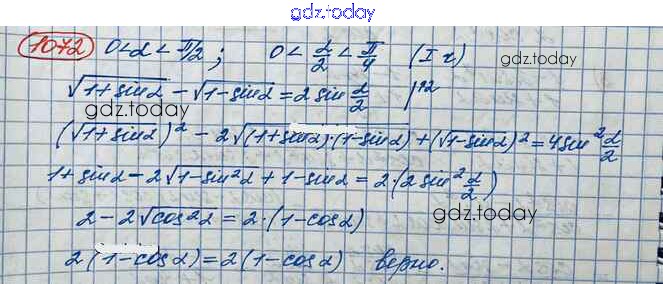 gdz.today
1072 0<α<π/2; 0<α/2<π/4 (I ч)
gdz.today
√1+sinα − √1−sinα = 2 sin α/2 |^2
gdz.today
(√1+sinα)² − 2√(1+sinα)·(1−sinα) + (√1−sinα)² = 4sin² α/2
1+sinα − 2√1−sin²α + 1−sinα = 2·(2sin² α/2)
2−2√cos²α = 2·(1−cosα)
gdz.today
2(1−cosα) = 2(1−cosα) верно.